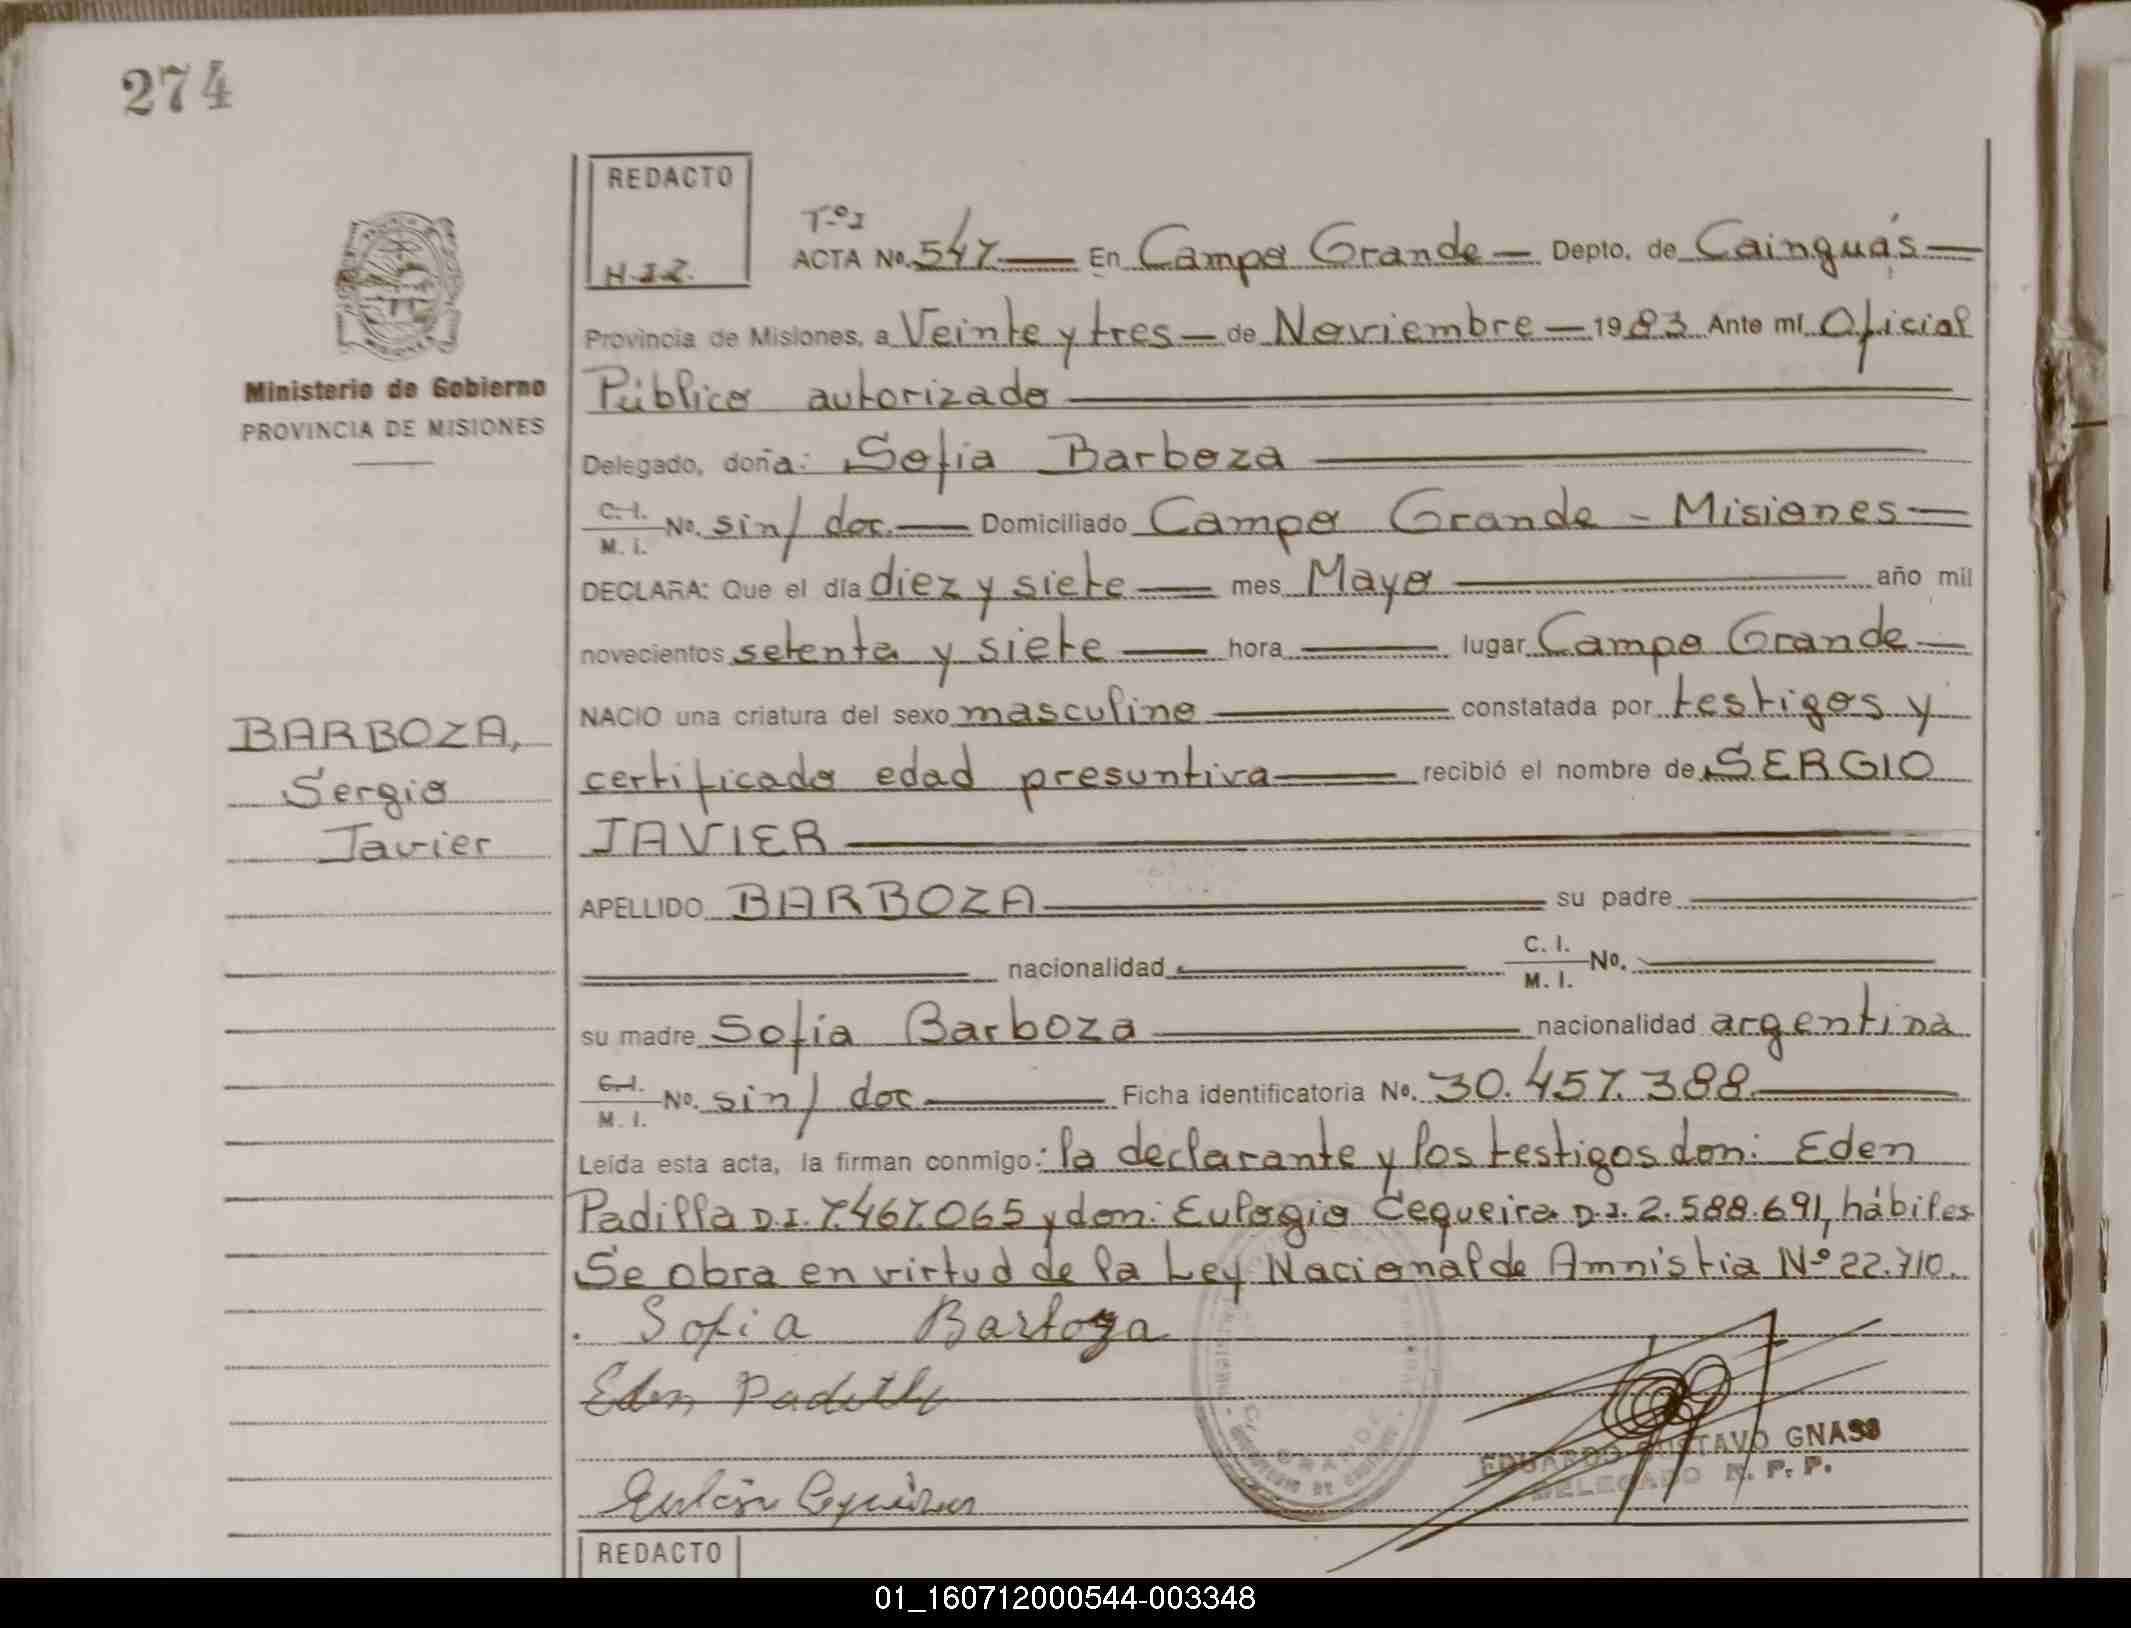 274
REDACTO
H.I.Z.
Tº1
ACTA Nº. 547 En Campo Grande Depto. de Cainguás
Provincia de Misiones, a Veinte y tres de Noviembre 1983 Ante mí Oficial
Público autorizado
Ministerio de Gobierno
PROVINCIA DE MISIONES
Delegado, doña: Sofia Barboza
C.I. M.I. Nº. sin/ doc. Domiciliado Campo Grande - Misiones
DECLARA: Que el día diez y siete mes Mayo año mil
novecientos setenta y siete hora lugar Campo Grande
NACIO una criatura del sexo masculino constatada por testigos y
certificado edad presuntiva recibió el nombre de SERGIO
JAVIER
BARBOZA,
Sergio
Javier
APELLIDO BARBOZA su padre
nacionalidad C. I. M. I. Nº.
su madre Sofia Barboza nacionalidad argentina
C.I. M.I. Nº. sin/ doc Ficha identificatoria Nº. 30.457.388
Leída esta acta, la firman conmigo: la declarante y los testigos don: Eden
Padilla D.I. 7.467.065 y don: Eulogio Cequeira D.I. 2.588.691, hábiles
Se obra en virtud de la Ley Nacional de Amnistia Nº 22.710.
Sofia Barboza
Eden Padilla
EDUARDO GUSTAVO GNASS
DELEGADO R. P. P.
REDACTO
01_160712000544-003348